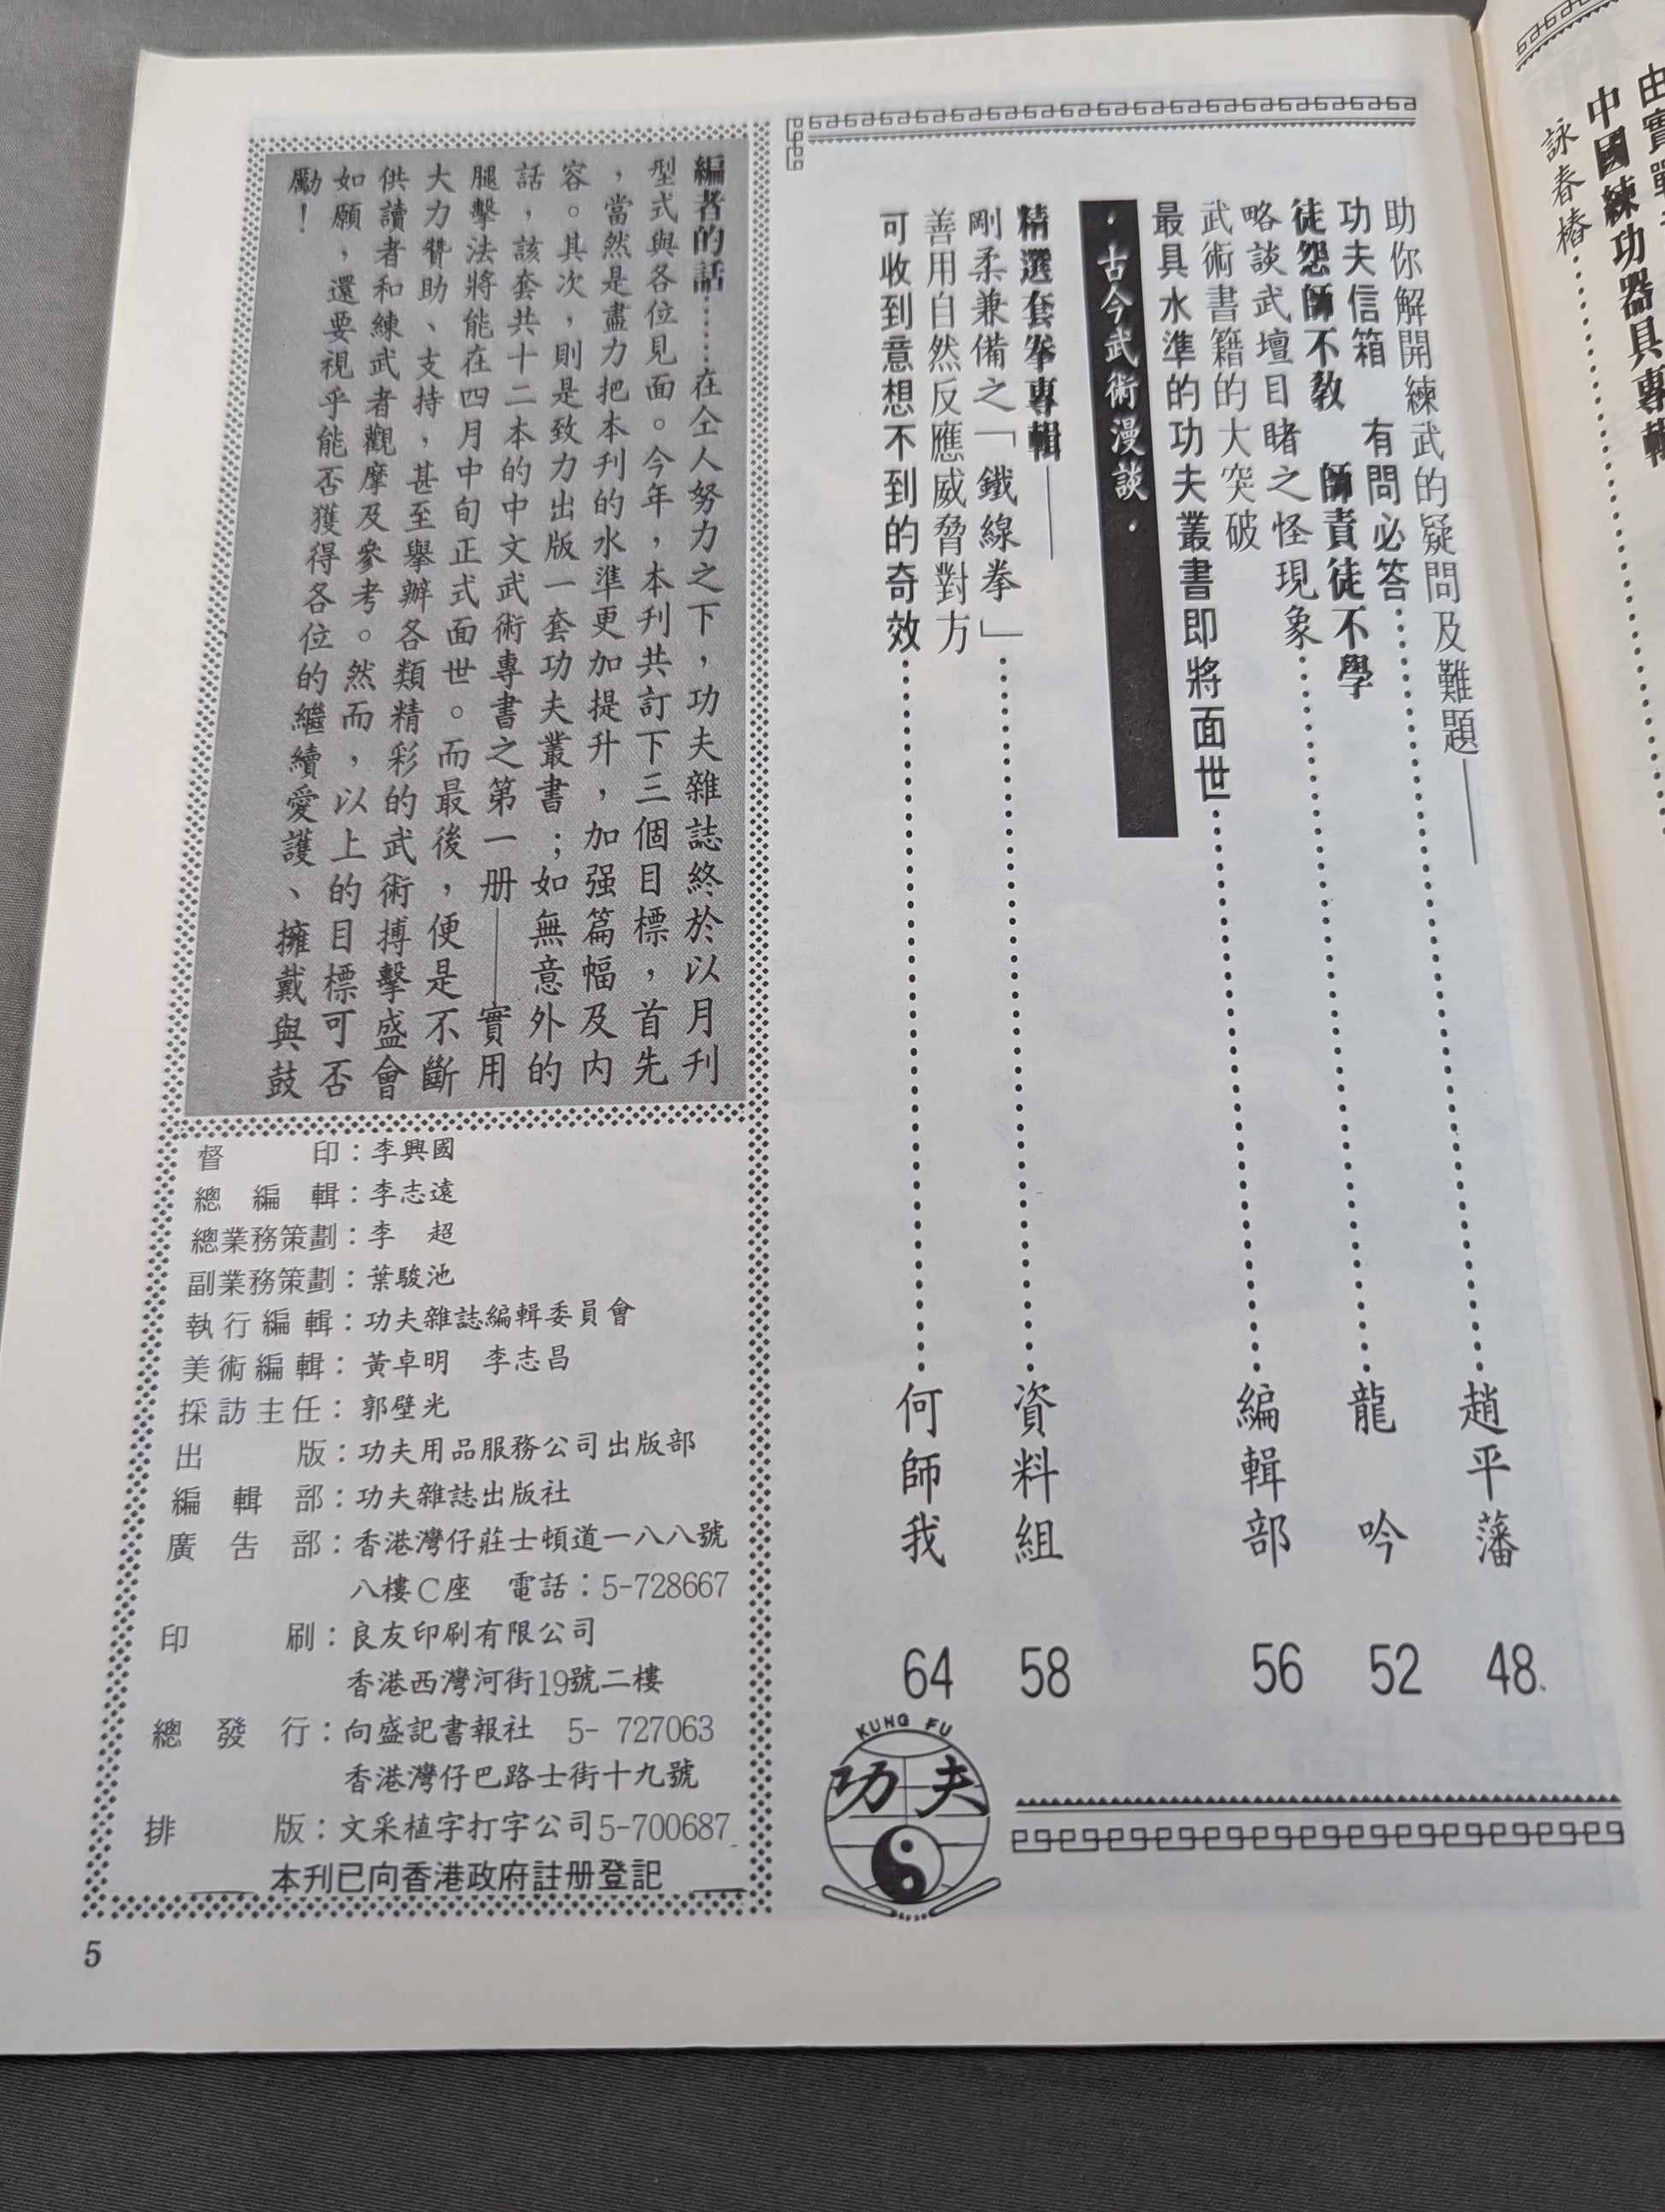 由實戰
中國練功器具專輯
詠春樁
助你解開練武的疑問及難題——
功夫信箱 有問必答 趙平藩 48
徒怨師不教 師責徒不學
略談武壇目睹之怪現象 龍吟 52
武術書籍的大突破
最具水準的功夫叢書即將面世 編輯部 56
·古今武術漫談·
精選套拳專輯——
剛柔兼備之「鐵線拳」 資料組 58
善用自然反應威脅對方
可收到意想不到的奇效 何師我 64
KUNG FU
功夫
編者的話……在仝人努力之下，功夫雜誌終於以月刊
型式與各位見面。今年，本刊共訂下三個目標，首先
，當然是盡力把本刊的水準更加提升，加强篇幅及內
容。其次，則是致力出版一套功夫叢書；如無意外的
話，該套共十二本的中文武術專書之第一册——實用
腿擊法將能在四月中旬正式面世。而最後，便是不斷
大力贊助、支持，甚至舉辦各類精彩的武術搏擊盛會
供讀者和練武者觀摩及參考。然而，以上的目標可否
如願，還要視乎能否獲得各位的繼續愛護、擁戴與鼓
勵！
督印：李興國
總編輯：李志遠
總業務策劃：李 超
副業務策劃：葉駿池
執行編輯：功夫雜誌編輯委員會
美術編輯：黃卓明 李志昌
採訪主任：郭壁光
出版：功夫用品服務公司出版部
編輯部：功夫雜誌出版社
廣告部：香港灣仔莊士頓道一八八號
八樓C座 電話：5-728667
印刷：良友印刷有限公司
香港西灣河街19號二樓
總發行：向盛記書報社 5-727063
香港灣仔巴路士街十九號
排版：文采植字打字公司5-700687
本刊已向香港政府註册登記
5